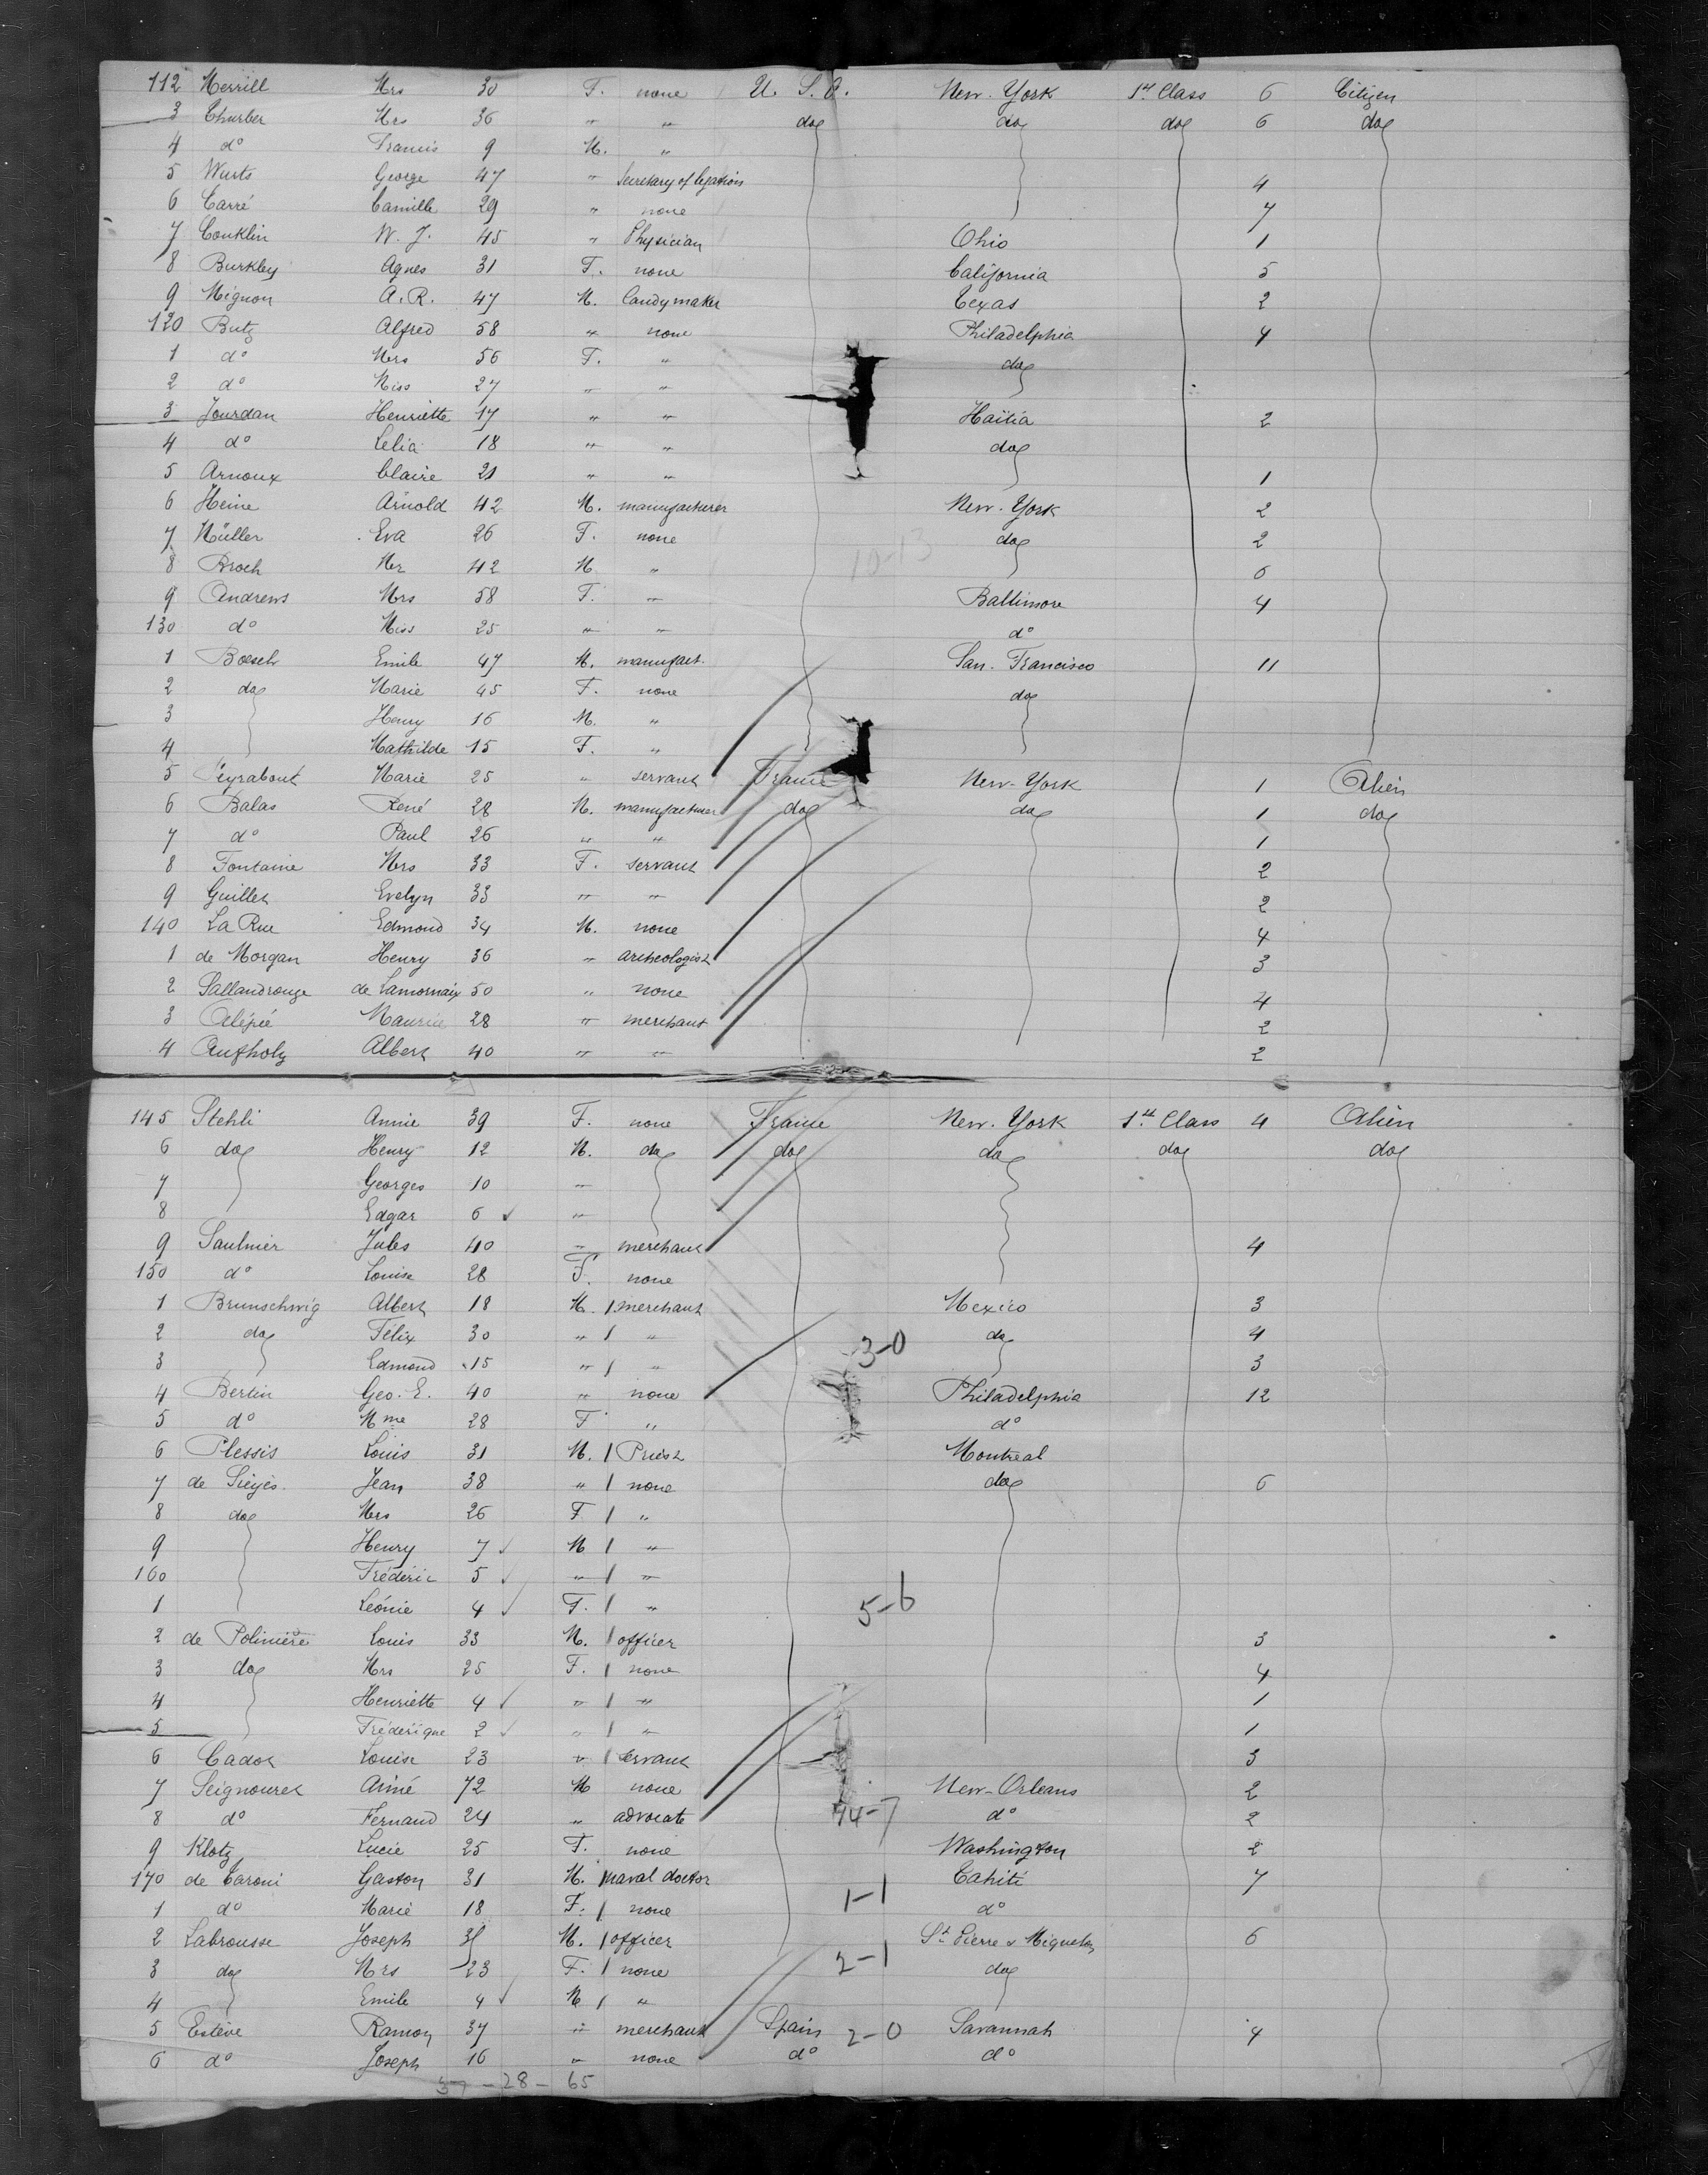 112 Merrill Mrs 30 F. none U. S. A. New-York 1st Class 6 Citizen
3 Thurber Mrs 36 " " do do do 6 do
4 do Francis 9 M. "
5 Wurts George 47 " Secretary of legation 4
6 Carré Camille 29 " none 7
7 Conklin W. J. 45 " Physician Ohio 1
8 Burkley Agnes 31 F. none California 5
9 Mignon A. R. 47 M. Candy maker Texas 2
120 Butz Alfred 58 " none Philadelphia 4
1 do Mrs 56 F. " do
2 do Miss 27 " "
3 Jourdan Henriette 17 " " Haïtia 2
4 do Lelia 18 " " do
5 Arnoux Claire 21 " " 1
6 Heine Arnold 42 M. manufacturer New-York 2
7 Müller Eva 26 F. none do 2
10-13
8 Broch Mr 42 M " 6
9 Andrews Mrs 58 F. " Baltimore 4
130 do Miss 25 " " do
1 Boesch Emile 47 M. manufact. San-Francisco 11
2 do Marie 45 F. none do
3 Henry 16 M. "
4 Mathilde 15 F. "
5 Peyrabout Marie 25 " servant France New-York 1 Alien
6 Balas René 28 M. manufacturer do do 1 do
7 do Paul 26 " " 1
8 Fontaine Mrs 33 F. servant 2
9 Guillet Evelyn 33 " " 2
140 La Rue Edmond 34 M. none 4
1 de Morgan Henry 36 " archeologist 3
2 Sallandrouze de Lamornaix 50 " none 4
3 Alépée Maurice 28 " merchant 2
4 Aufholz Albert 40 " " 2
145 Stehli Annie 39 F. none France New-York 1st Class 4 Alien
6 do Henry 12 M. do do do do do
7 Georges 10 "
8 Edgar 6 ✓ "
9 Saulnier Jules 40 " merchant 4
150 do Louise 28 F. none
1 Brunschwig Albert 18 M. / merchant Mexico 3
2 do Félix 30 " / " 3-0 do 4
3 Edmond 15 " / " 3
4 Bertin Geo. E. 40 " none Philadelphia 12
5 do Mme 28 F " do
6 Plessis Louis 31 M. / Priest Montreal
7 de Sieyès Jean 38 " / none do 6
8 do Mrs 26 F / "
9 Henry 7 ✓ M / "
160 Fréderic 5 ✓ " / "
1 Léonie 4 ✓ F. / " 5-6
2 de Polinière Louis 33 M. / officer 3
3 do Mrs 25 F. / none 4
4 Henriette 4 ✓ " / " 1
5 Fréderique 2 ✓ " / " 1
6 Cadot Louise 23 " / servant 3
7 Seignouret Aimé 72 M none New-Orleans 2
8 do Fernand 24 " advocate do 2
9 Klotz Lucie 25 F. none Washington 2
170 de Caroni Gaston 31 M. / naval doctor Tahiti 7
1 do Marie 18 F. / none 1-1 do
2 Labrousse Joseph M. / officer St Pierre & Miquelon 6
3 do Mrs 23 F. / none 2-1 do
4 Emile 4 ✓ M / "
5 Estève Ramon 37 " merchant Spain 2-0 Savannah 4
6 do Joseph 16 " none do do
37 - 28 - 65